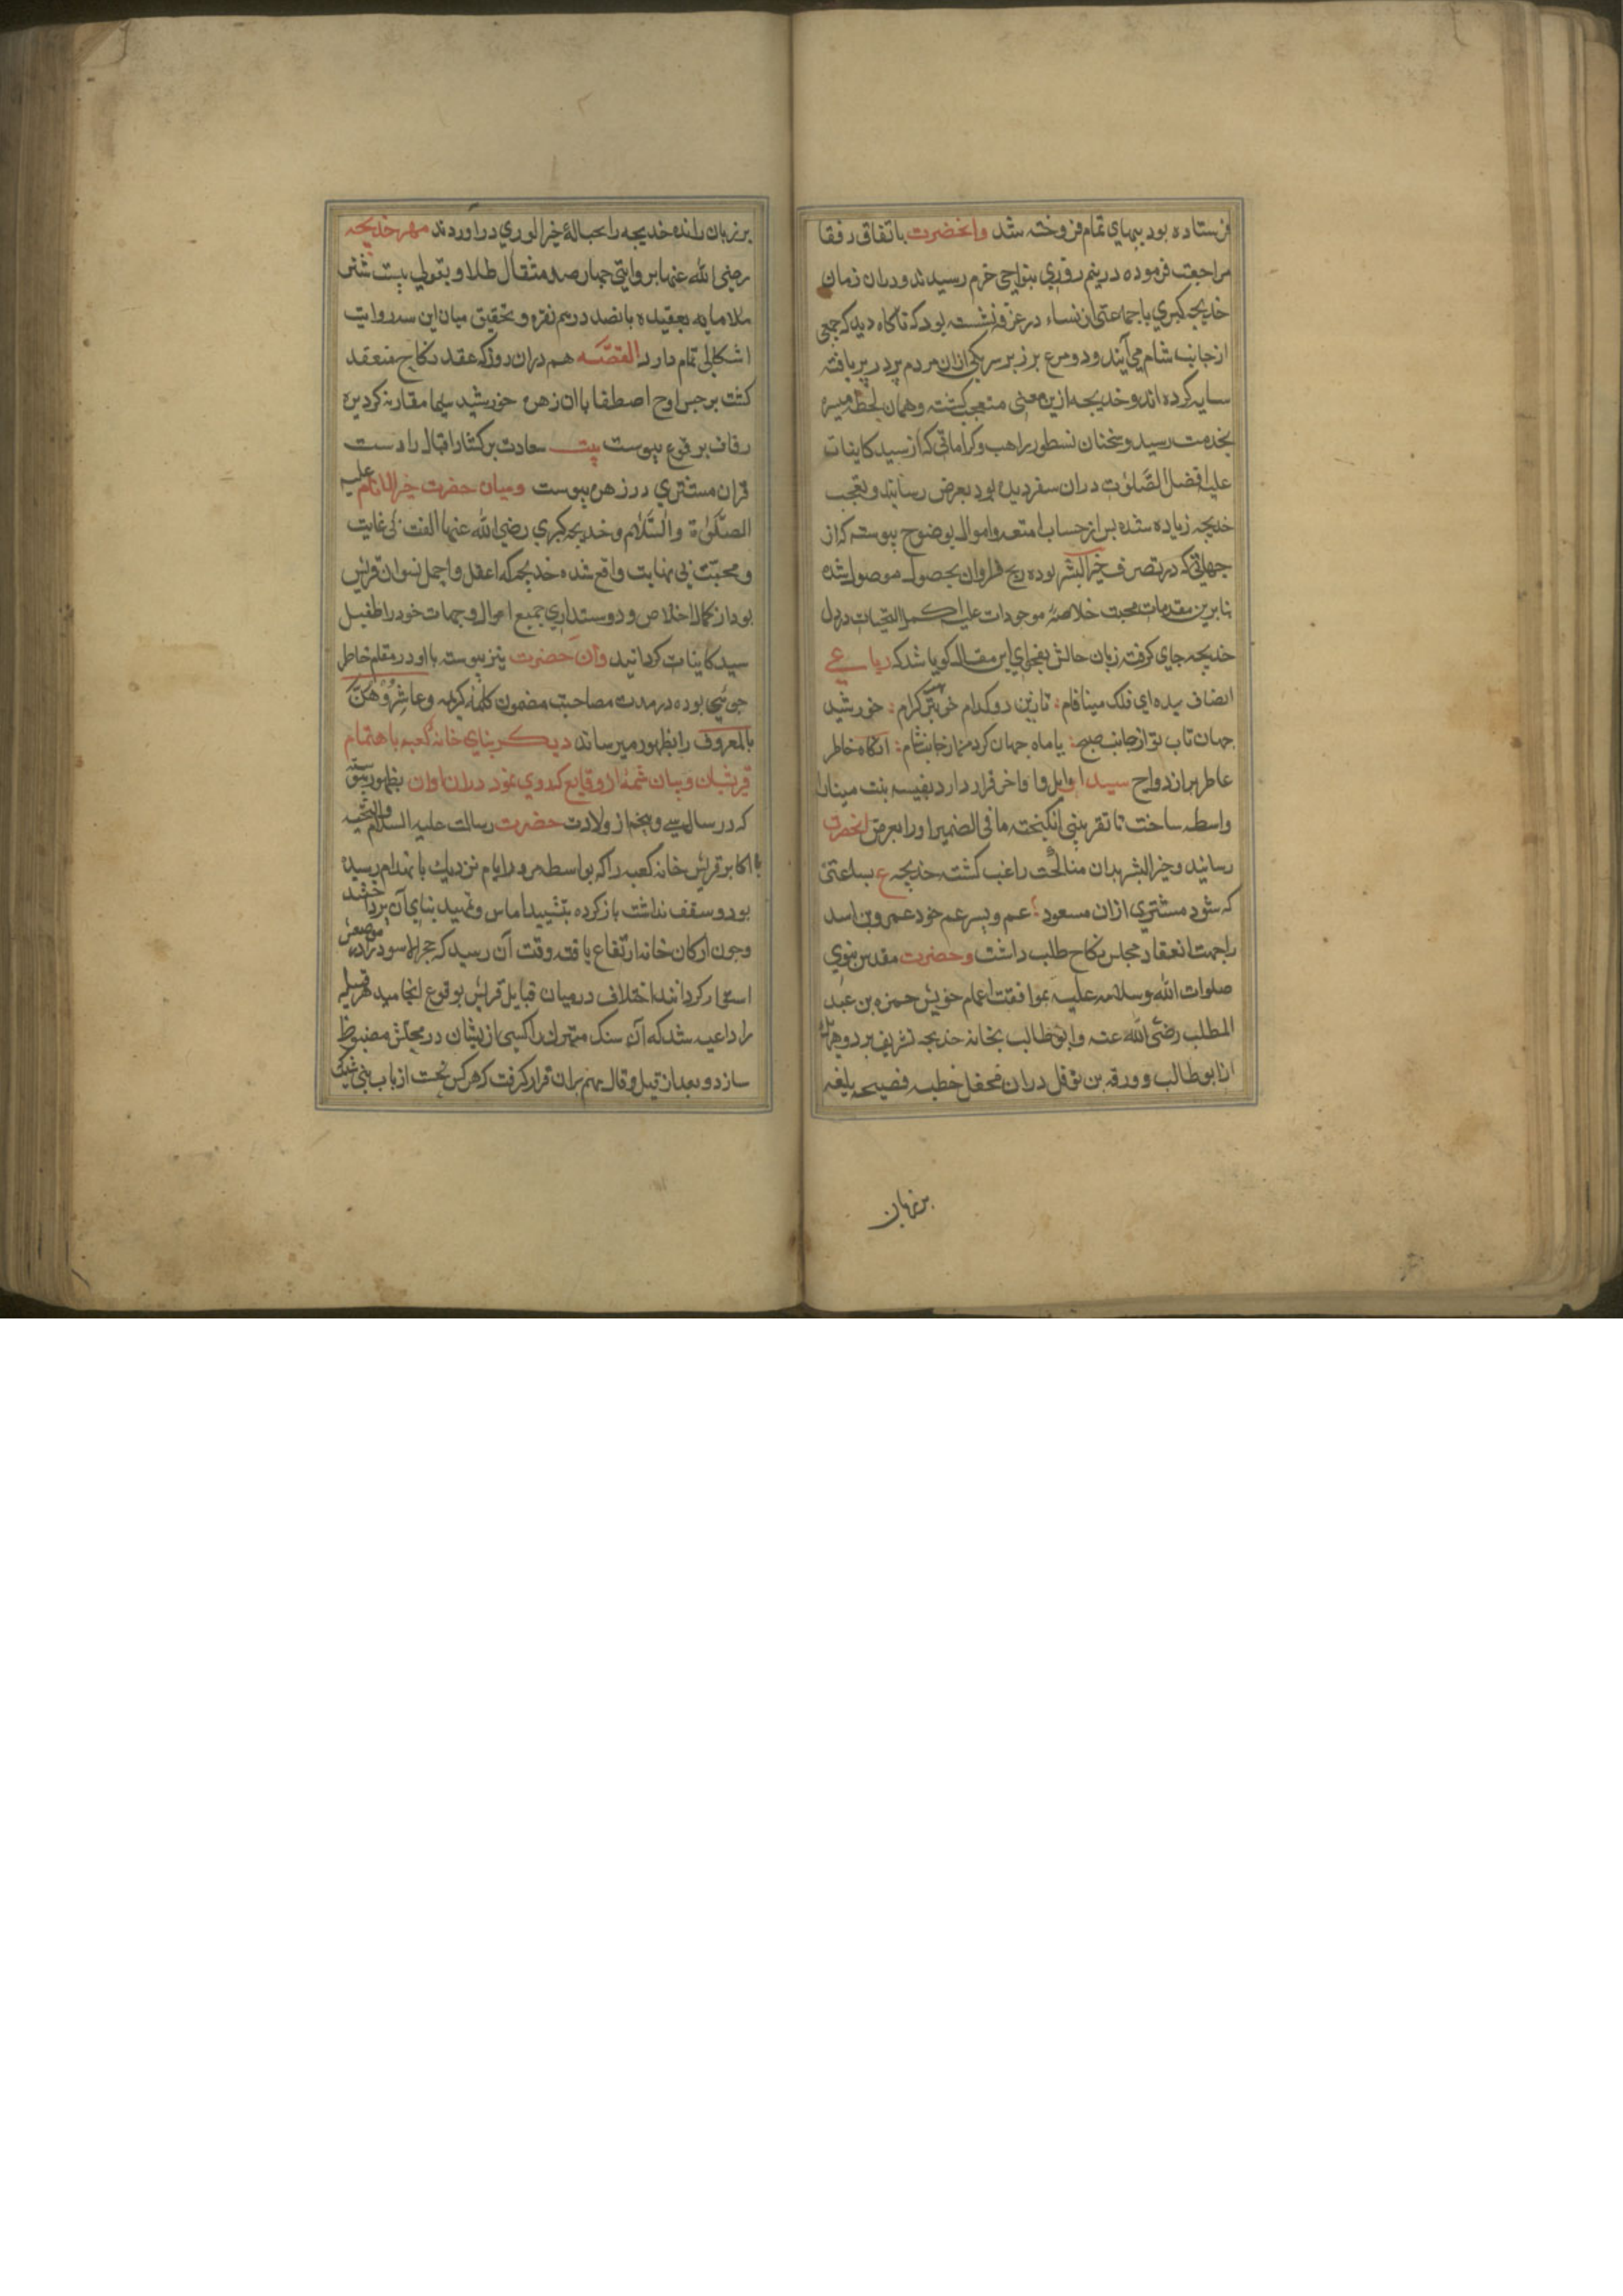 فرستاده بود ببهای تمام فروخته شد وانحضرت باتفاق رفقا
مراجعت فرموده در نیم روزی بنواحی حرم رسیدند و دران زمان
خدیجه کبری با جماعتی از نساء در غرفه نشسته بود که ناکاه دید که جمعی
از جانب شام می آیند و دو مرغ بر زبر سر یکی ازان مردم پر در پر بافته
سایه کرده اند و خدیجه ازین معنی متعجب کشته و همان لحظه میسره
بخدمت رسید و سخنان نسطور راهب و کراماتی که از سید کاینات
علیه افضل الصلوت دران سفر دیده بود بعرض رسانید و تعجب
خدیجه زیاده شده پس از حساب امتعه و اموال بوضوح پیوست که از
جهاتی که در تصرف خیر البشر بوده ربح فراوان بحصول موصول شده
بنابرین مقدمات محبت خلاصهٔ موجودات علیه اکمل التحیات در دل
خدیجه جای کرفت زبان حالش بفحوای این مقال کویا شد که رباعی
انصاف بده ای فلک مینا فام تا زین دو کدام خوبتر کرام خورشید
جهان تاب تو از جانب صبح یا ماه جهان کرد من از جانب شام انکاه خاطر
عاطر بر ازدواج سید اوایل و اواخر قرار داد نفیسه بنت مینا را
واسطه ساخت تا تقریبی انکیخته ما فی الضمیر او را بعرض انحضرت
رسانید و خیر البشر بدان مناکحت راغب کشته خدیجه ع بساعتی
که شود مشتری ازان مسعود عم و پسر عم خود عمرو بن اسد
را جهت انعقاد مجلس نکاح طلب داشت و حضرت مقدس نبوی
صلوات الله وسلامه علیه بموافقت اعمام خویش حمزه بن عبد
المطلب رضی الله عنه وابو طالب بخانه خدیجه تشریف برد و هریک
از ابوطالب و ورقه بن نوفل دران محفل خطبه فصیحه بلیغه
بر زبان
بر زبان رانده خدیجه را بحبالهٔ خیر الوری دراوردند مهر خدیجه
رضی الله عنها بروایتی چهار صد مثقال طلا و بقولی بیست شتر
ملا مایه بعقیده پانصد درم نقره و تحقیق میان این سه روایت
اشکالی تمام دارد القصّه هم دران روز که عقد نکاح منعقد
کشت برجیس اوج اصطفا با ان زهره خورشید سیما مقارنه کردیده
زفاف بوقوع پیوست بیت سعادت برکشاد اقبال را دست
قران مشتری در زهره پیوست ومیان حضرت خیر الانام علیه
الصلوٰة والسّلام و خدیجه کبری رضی الله عنها الفت بی غایت
و محبت بی نهایت واقع شده خدیجه که اعقل و اجمل نسوان قریش
بود از کمال اخلاص و دوستداری جمیع اموال و جهات خود را طفیل
سید کاینات کردانید وان حضرت نیز پیوسته با او در مقام خاطر
جوئی بوده در مدت مصاحبت مضمون کلمهٔ کریمه وعاشِرُوهُنَّ
بالمعروف را بظهور میرساند دیکر بنای خانه کعبه با هتمام
قریشیان و بیان شمهٔ از وقایع که روی نمود دران اوان بظهور پیوسته
که در سال سی وپنجم از ولادت حضرت رسالت علیه السلام والتحیه
اکابر قریش خانه کعبه را که بواسطه مرور ایام نزدیک بانهدام رسیده
بود و سقف نداشت باز کرده بتشیید اساس وتمهید بنای آن پرداختند
وچون ارکان خانه ارتفاع یافت وقت آن رسید که حجر الاسود را در موضعش
استوار کردانند اختلاف درمیان قبایل قریش بوقوع انجامید هر قبیله
را داعیه شد که آن سنک متبرک را کسی از یشان در محلش مضبوط
سازد و بعد از قیل وقال مهم بران قرار کرفت که هرکس نخست از باب بنی شیبه